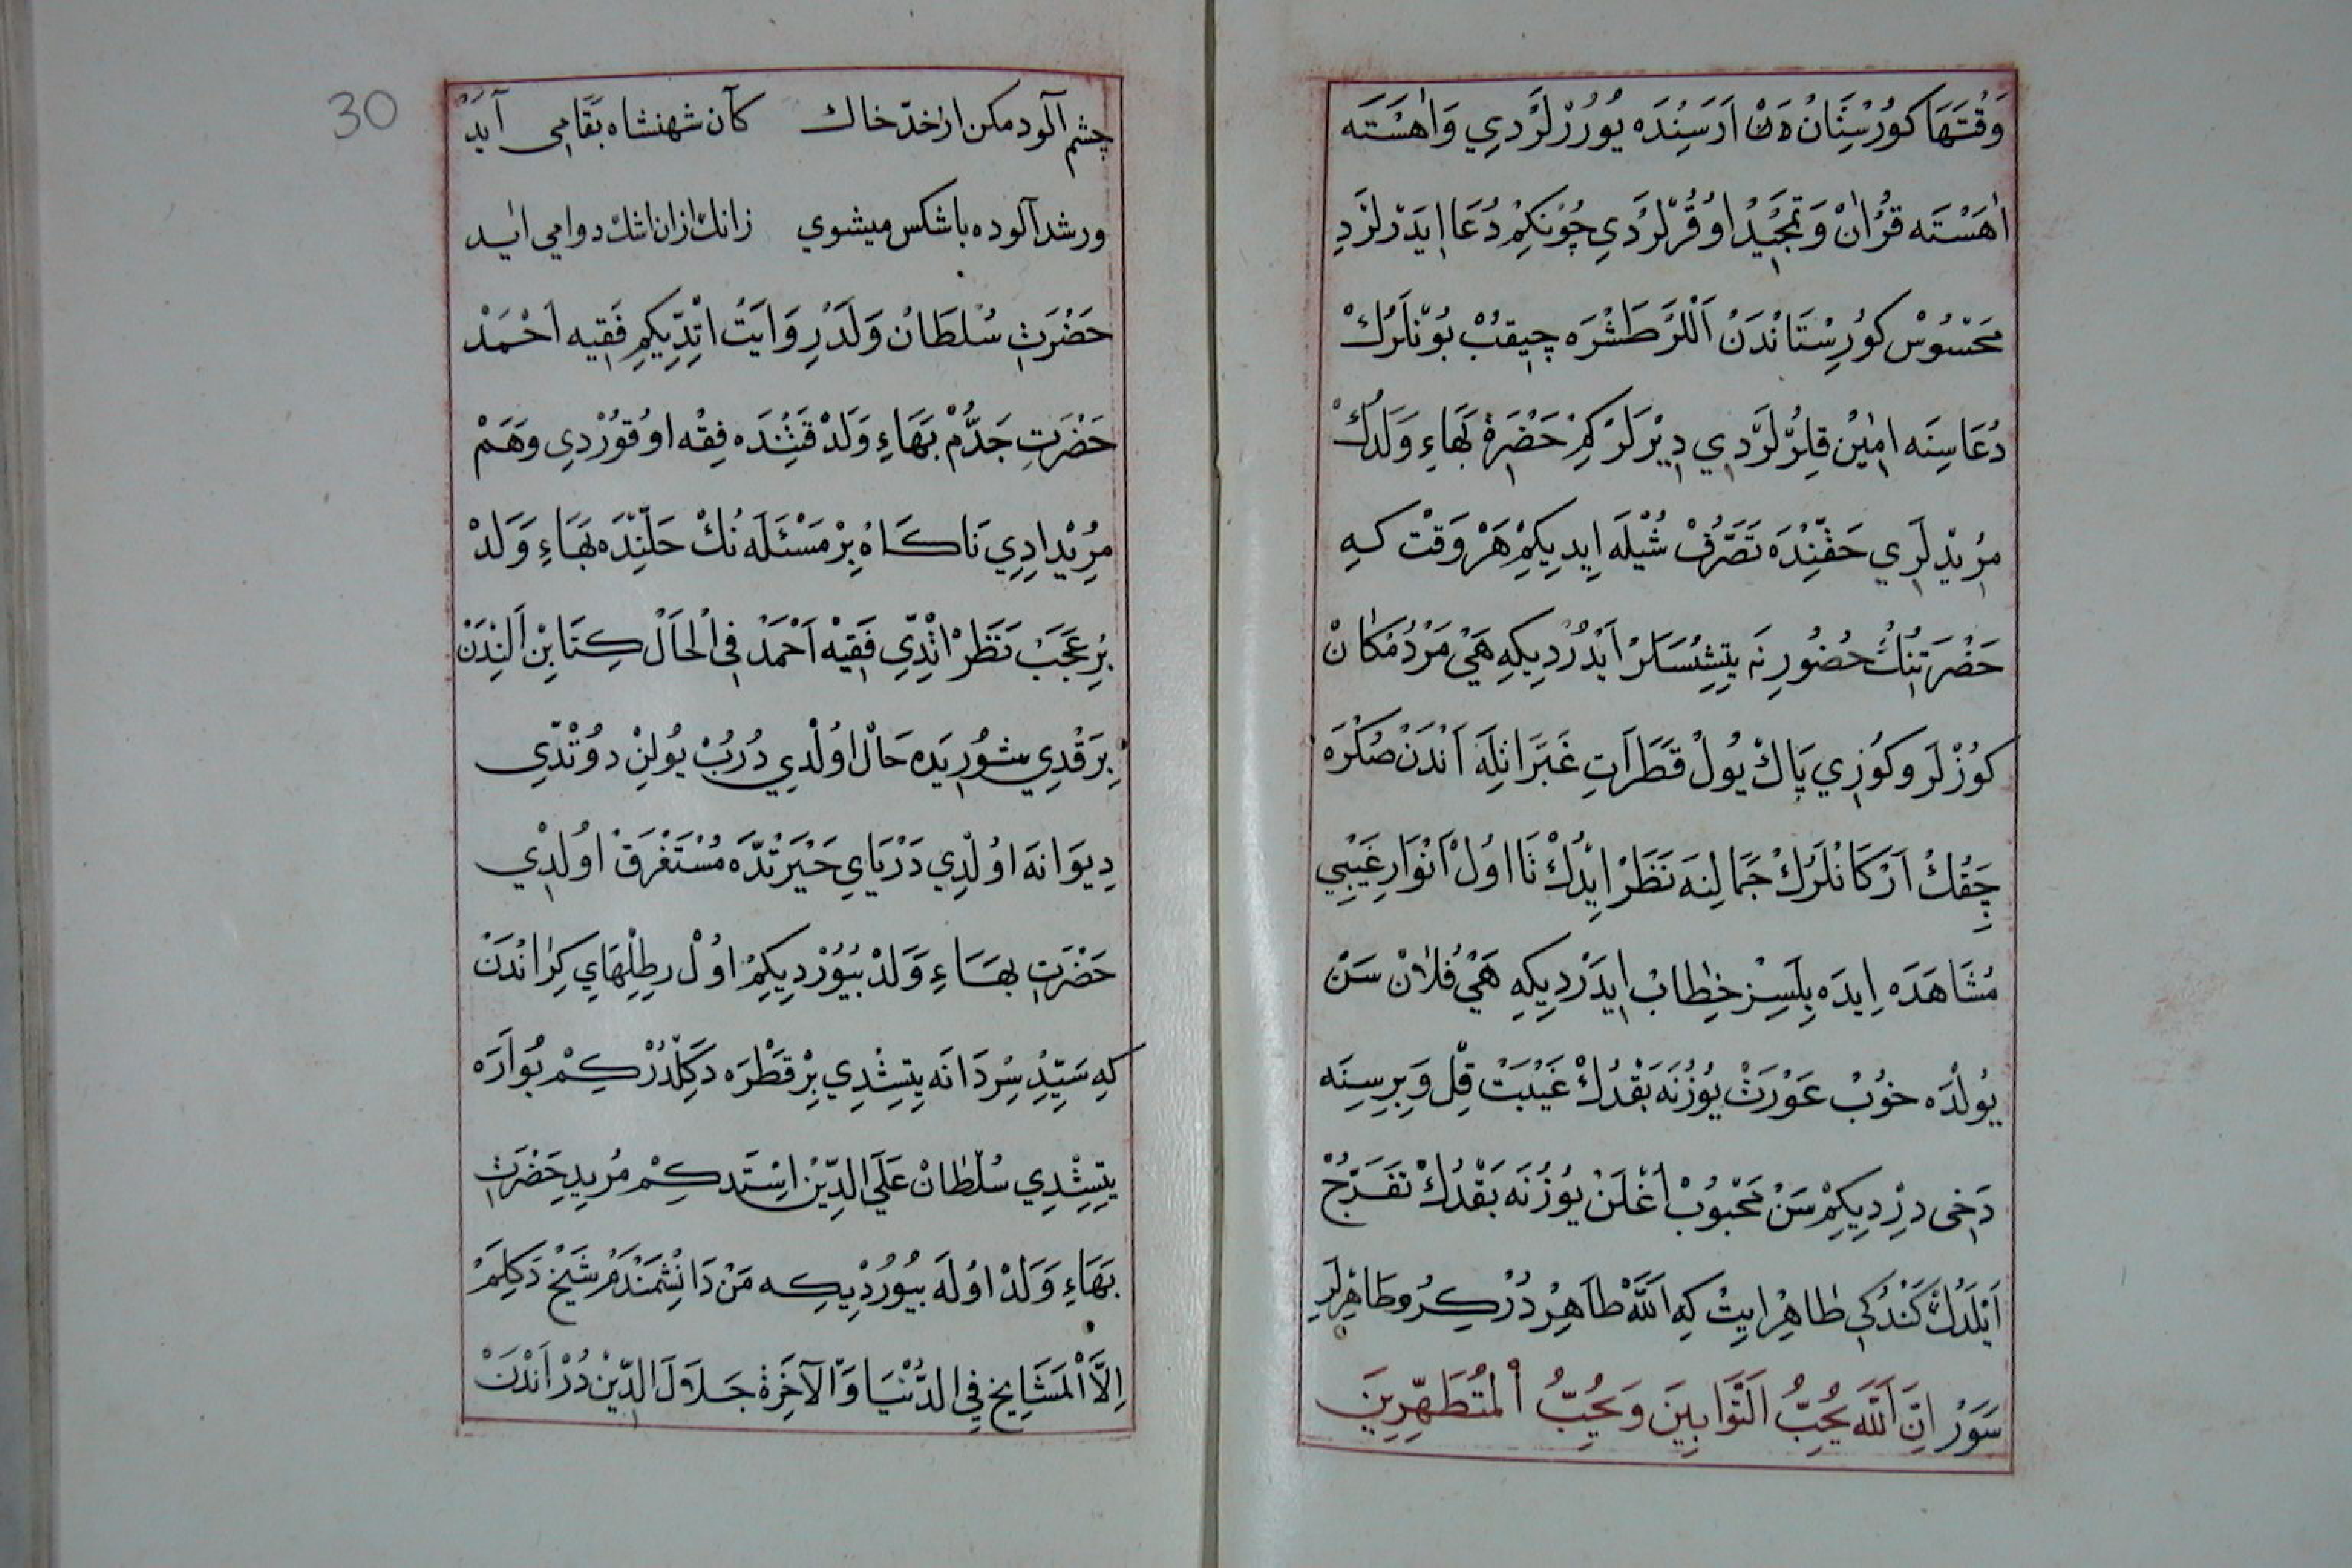 وَقْتَهَا كُورُسْتَانْ دَنْ اَرَسِنْدَه يُورُرْلَرْدِي وَاٰهَسْتَه
اٰهَسْتَه قُرْاٰنْ وَتَمْجِيدْ اوُقُرْلَرْدِي چُونْكِمْ دُعَا اِيدَرْلَرْدِ
مَحْسُوسْ كُورِسْتَانْدَنْ اَللَرْ طَشْرَه چِيقُبْ بُونْلَرُكْ
دُعَاسِنَه اٰمِينْ قِلُرْلَرْدِي دِيرْلَرْ كِمْ حَضْرَةِ بَهَاءِ وَلَدُكْ
مُرِيدْلَرِي حَقِّنْدَه تَصَرُّفْ شُيْلَه اِيدِيكِمْ هَرْ وَقْتْ كِه
حَضْرَتِنُكْ حُضُورِنَه يِتِشِسَلَرْ اَيْدُرْدِيكِه هَيْ مَرْدُمَكَانْ
كُوزْلَر وَكُوزِي پَاكْ يُولْ قَطَرَاتِ عَبَرَاتِلَه اَنْدَنْ صُكْرَه
چِقُكْ اَرْكَانْلَرُكْ جَمَالِنَه نَظَرْ اِيدُكْ تَا اوُلْ اَنْوَارِ غَيْبِي
مُشَاهَدَه اِيدَه بِلَسِز خِطَابْ اِيدَرْدِيكِه هَيْ فُلَانْ سَنْ
يُولْدَه خُوبْ عَوْرَتْ يُوزُنَه بَقْدُكْ غَيْبَتْ قِلْ وَبِرِسِنَه
دَخِى دِرْدِيكِمْ سَنْ مَحْبُوبْ اُغْلَنْ يُوزُنَه بَقْدُكْ تَفَرُّجْ
اَيْلَدُكْ كَنْدُكِى طَاهِرْ اِيتْ كِه اَللّٰه طَاهِرْ دُرْ كِرُو طَاهِرْلَرِ
سَوَرْ اِنَّ اَللّٰهَ يُحِبُّ اَلتَّوَّابِينَ وَيُحِبُّ اْلمُتَطَهِّرِينَ
چشم آلود مكن از خدّ خاك كآن شهنشاه بَقَا مى آيَدْ
ور شد آلوده باشكس ميشوي زانك ازان اشك دوا مي ايد
حَضْرَتِ سُلطَانْ وَلَدْ رِوَايَتْ اِتْدِيكِمْ فَقِيه اَحْمَدْ
حَضْرَتِ جَدُّمْ بَهَاءِ وَلَدْ قَتِنْدَه فِقْه اوُقُورْدِي وَهَمْ
مُرِيدْ اِدِي نَاكَاهْ بِرْ مَسْئَلَه نُكْ حَلِّنْدَه بَهَاءِ وَلَدْ
بِرْ عَجَبْ نَظَرْ اِتْدِي فَقِيهْ اَحْمَدْ فِى الْحَالْ كِتَابِنْ اَلِنْدَنْ
بِرَقْدِي شُورِيدَه حَالْ اوُلْدِي دُرُبْ يُولِنْ دوُتْدِي
دِيوَانَه اوُلْدِي دَرْيَايِ حَيْرَتْدَه مُسْتَغْرَقْ اوُلْدِي
حَضْرَتِ بهَاءِ وَلَدْ بُيُورْدِيكِمْ اوُلْ رِطِلْهَايِ كِرَانْدَنْ
كِه سَيِّدِ سِرْدَانَه يِتِشْدِي بِرْ قَطْرَه دَكِلْدُرْ كِمْ بُوآرَه
يِتِشْدِي سُلْطَانْ عَلَي الدِّينْ اِسْتَد كِمْ مُرِيدِ حَضْرَتِ
بَهَاءِ وَلَدْ اوُلَه بُيُورْدِيكِه مَنْ دَانِشْمَنْدَمْ شَيْخْ دَكِلَمْ
اِلَّا الْمَشَايِخ فِي الدُّنْيَا وَالْآخِرَةْ جَلَالَ الدِّينْ دُرْ اَنْدَنْ
30